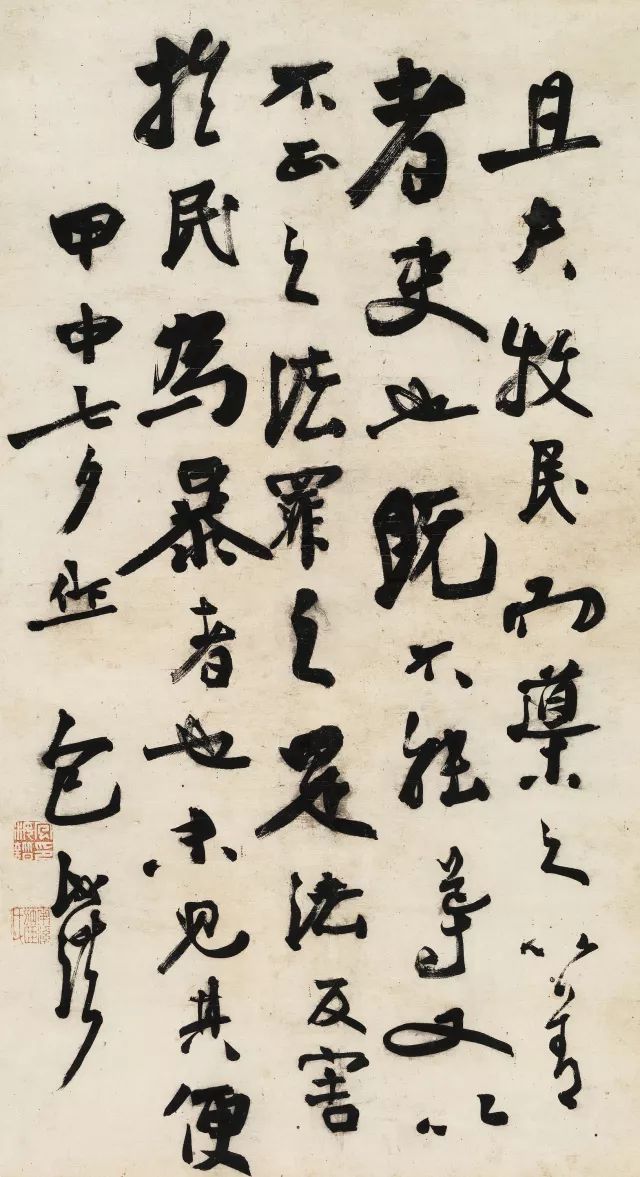 且夫牧民而導之以善
者吏也既不能導又以
不正之法罪之是法反害
於民為暴者也未見其便
甲申七夕作 包世臣